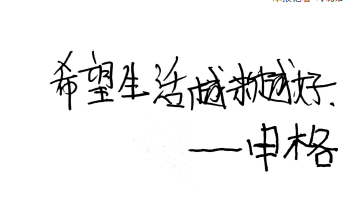 希望生活越来越好.
——申格